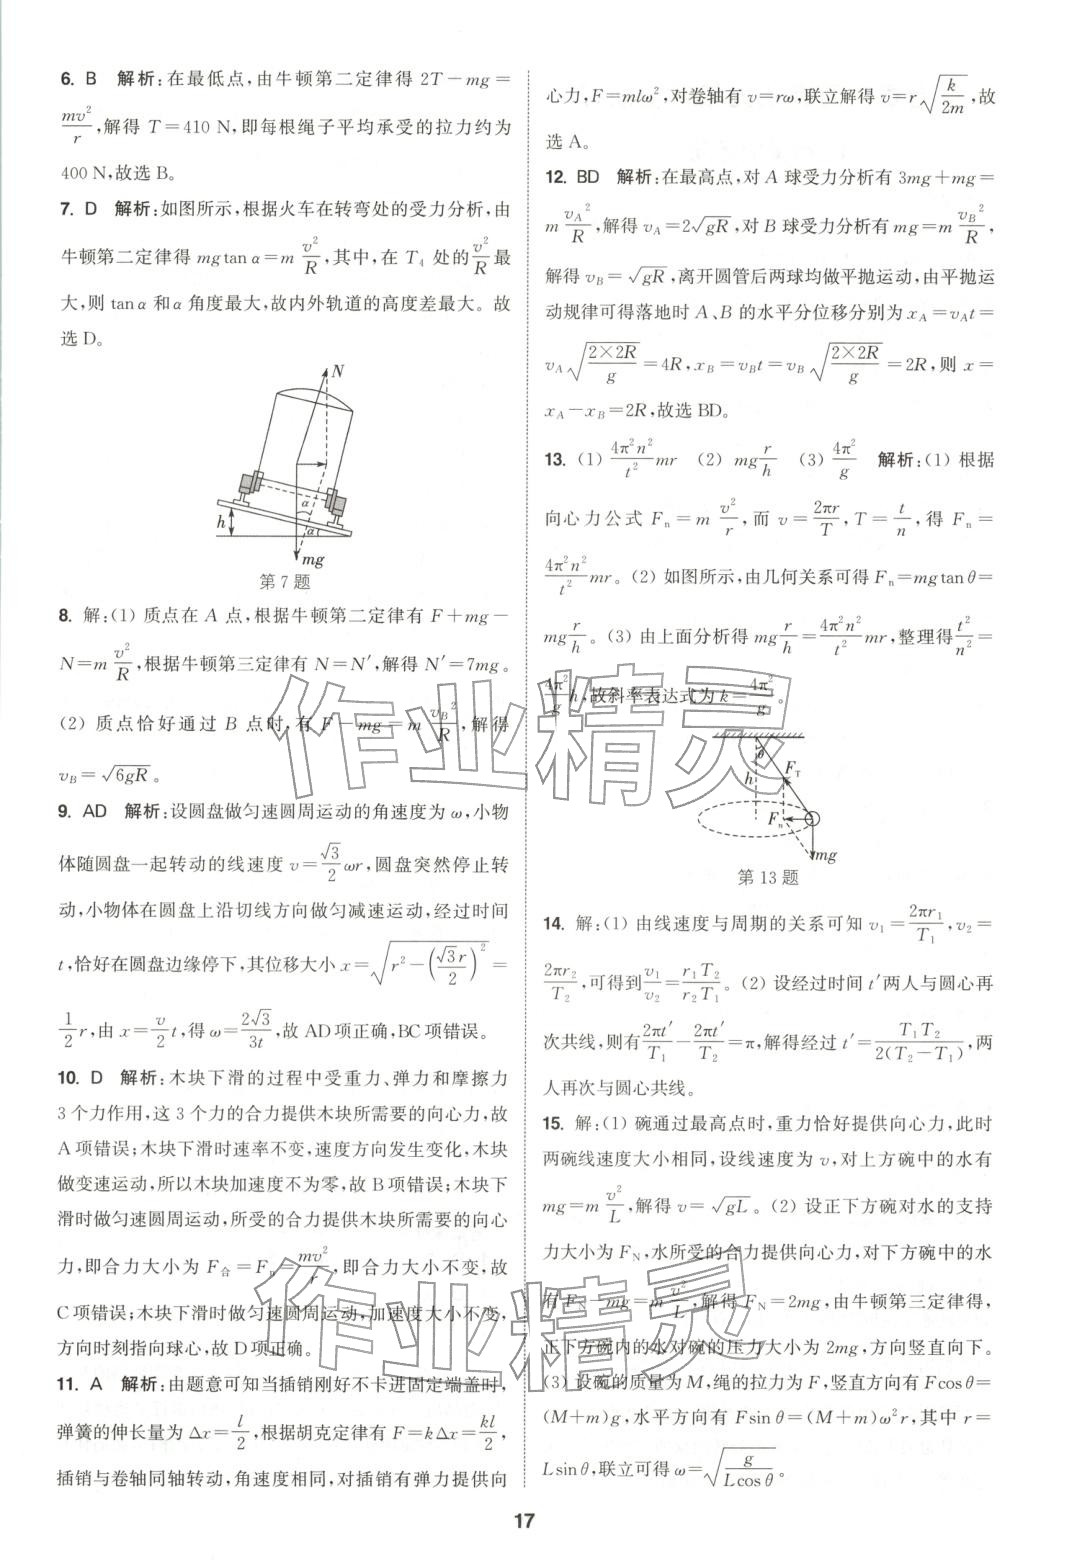 6. B 解析:在最低点,由牛顿第二定律得 2T－mg＝
mv²/r,解得 T＝410 N,即每根绳子平均承受的拉力约为
400 N,故选 B。
7. D 解析:如图所示,根据火车在转弯处的受力分析,由
牛顿第二定律得 mg tan α＝m v²/R,其中,在 T₄ 处的 v²/R 最
大,则 tan α 和 α 角度最大,故内外轨道的高度差最大。故
选 D。
N
α
h
α
mg
第 7 题
8. 解:(1) 质点在 A 点,根据牛顿第二定律有 F＋mg－
N＝m v²/R,根据牛顿第三定律有 N＝N′,解得 N′＝7mg。
(2) 质点恰好通过 B 点时,有 F－mg＝m v_B²/R,解得
v_B＝√(6gR)。
9. AD 解析:设圆盘做匀速圆周运动的角速度为 ω,小物
体随圆盘一起转动的线速度 v＝(√3/2)ωr,圆盘突然停止转
动,小物体在圆盘上沿切线方向做匀减速运动,经过时间
t,恰好在圆盘边缘停下,其位移大小 x＝√(r²－(√3r/2)²)＝
(1/2)r,由 x＝(v/2)t,得 ω＝2√3/3t,故 AD 项正确,BC 项错误。
10. D 解析:木块下滑的过程中受重力、弹力和摩擦力
3 个力作用,这 3 个力的合力提供木块所需要的向心力,故
A 项错误;木块下滑时速率不变,速度方向发生变化,木块
做变速运动,所以木块加速度不为零,故 B 项错误;木块下
滑时做匀速圆周运动,所受的合力提供木块所需要的向心
力,即合力大小为 F合＝Fₙ＝mv²/r,即合力大小不变,故
C 项错误;木块下滑时做匀速圆周运动,加速度大小不变,
方向时刻指向球心,故 D 项正确。
11. A 解析:由题意可知当插销刚好不卡进固定端盖时,
弹簧的伸长量为 Δx＝l/2,根据胡克定律有 F＝kΔx＝kl/2,
插销与卷轴同轴转动,角速度相同,对插销有弹力提供向
心力,F＝mlω²,对卷轴有 v＝rω,联立解得 v＝r√(k/2m),故
选 A。
12. BD 解析:在最高点,对 A 球受力分析有 3mg＋mg＝
m v_A²/R,解得 v_A＝2√(gR),对 B 球受力分析有 mg＝m v_B²/R,
解得 v_B＝√(gR),离开圆管后两球均做平抛运动,由平抛运
动规律可得落地时 A、B 的水平分位移分别为 x_A＝v_A t＝
v_A√(2×2R/g)＝4R,x_B＝v_B t＝v_B√(2×2R/g)＝2R,则 x＝
x_A－x_B＝2R,故选 BD。
13. (1) (4π²n²/t²)mr (2) mg r/h (3) 4π²/g 解析:(1) 根据
向心力公式 Fₙ＝m v²/r,而 v＝2πr/T,T＝t/n,得 Fₙ＝
(4π²n²/t²)mr。(2) 如图所示,由几何关系可得 Fₙ＝mg tan θ＝
mg r/h。(3) 由上面分析得 mg r/h＝(4π²n²/t²)mr,整理得 t²/n²＝
(4π²/g)h,故斜率表达式为 k＝4π²/g。
θ
h
F_T
Fₙ
mg
第 13 题
14. 解:(1) 由线速度与周期的关系可知 v₁＝2πr₁/T₁,v₂＝
2πr₂/T₂,可得到 v₁/v₂＝r₁T₂/r₂T₁。(2) 设经过时间 t′两人与圆心再
次共线,则有 2πt′/T₁－2πt′/T₂＝π,解得经过 t′＝T₁T₂/2(T₂－T₁),两
人再次与圆心共线。
15. 解:(1) 碗通过最高点时,重力恰好提供向心力,此时
两碗线速度大小相同,设线速度为 v,对上方碗中的水有
mg＝m v²/L,解得 v＝√(gL)。(2) 设正下方碗对水的支持
力大小为 F_N,水所受的合力提供向心力,对下方碗中的水
有 F_N－mg＝m v²/L,解得 F_N＝2mg,由牛顿第三定律得,
正下方碗内的水对碗的压力大小为 2mg,方向竖直向下。
(3) 设碗的质量为 M,绳的拉力为 F,竖直方向有 F cos θ＝
(M＋m)g,水平方向有 F sin θ＝(M＋m)ω²r,其中 r＝
L sin θ,联立可得 ω＝√(g/L cos θ)。
17
作业精灵
作业精灵